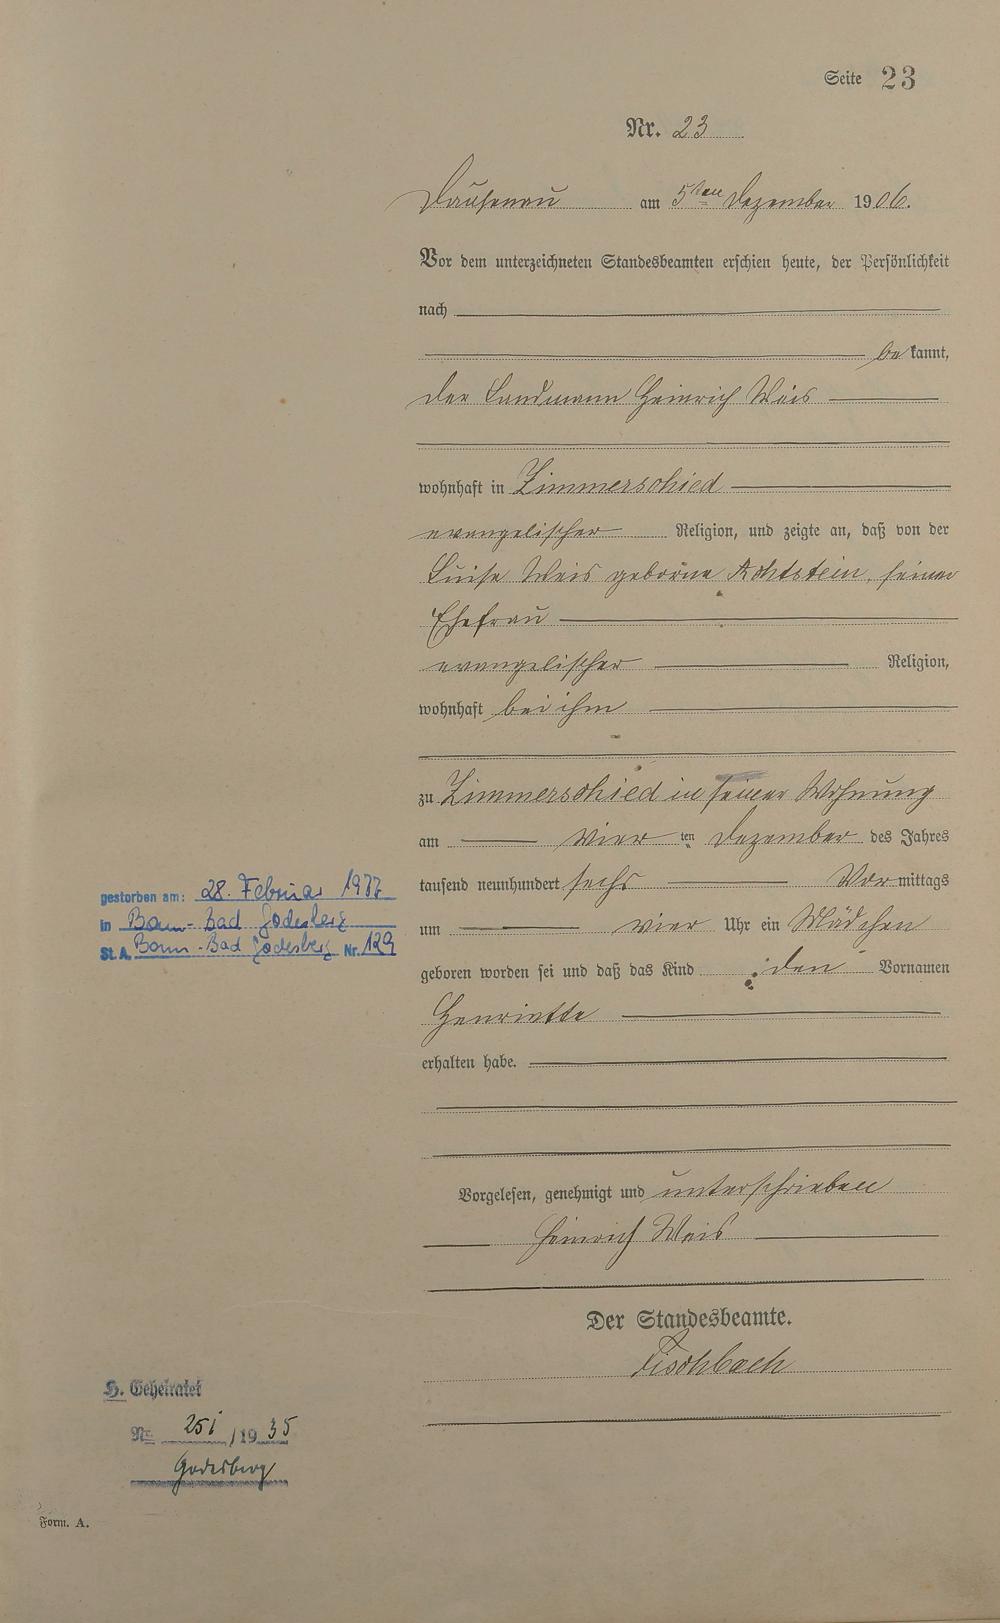 Seite 23
Nr. 23
Dausenau am 5ten Dezember 1906.
Vor dem unterzeichneten Standesbeamten erschien heute, der Persönlichkeit
nach
be kannt,
der Landmann Heinrich Weis
wohnhaft in Zimmerschied
evangelischer Religion, und zeigte an, daß von der
Luise Weis geborne Achtstein, seiner
Ehefrau
evangelischer Religion,
wohnhaft bei ihm
zu Zimmerschied in seiner Wohnung
am vier ten Dezember des Jahres
tausend neunhundert sechs Vor mittags
um vier Uhr ein Mädchen
geboren worden sei und daß das Kind den Vornamen
Henriette
erhalten habe.
Vorgelesen, genehmigt und unterschrieben
Heinrich Weis
Der Standesbeamte.
Fischbach
gestorben am: 28. Februar 1977
in Bonn-Bad Godesberg
St.A. Bonn-Bad Godesberg Nr. 129
H. Geheiratet
Nr. 251 / 19 35
Godesberg
Form. A.